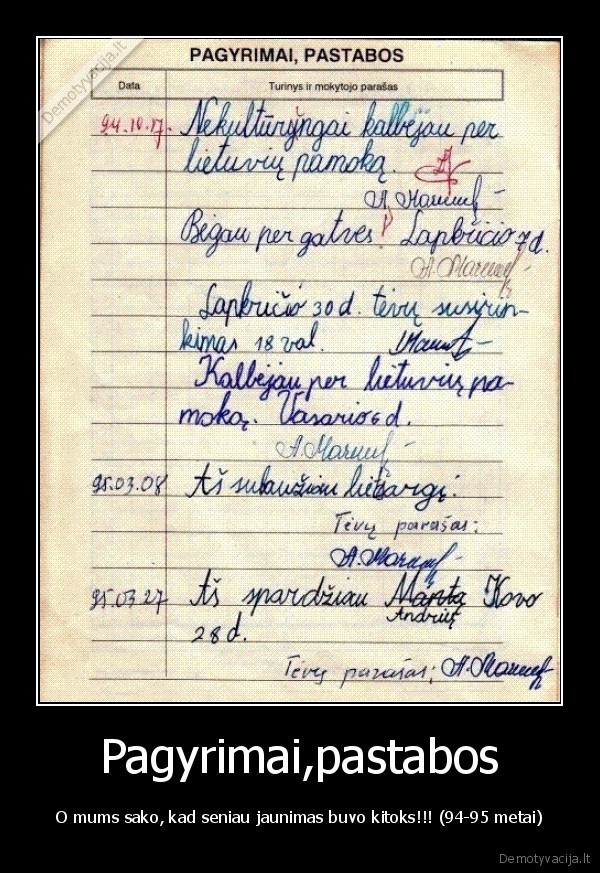 Demotyvacija.lt
PAGYRIMAI, PASTABOS
Data Turinys ir mokytojo parašas
94.10.17. Nekultūryngai kalbėjau per
lietuvių pamoką.
Bėgau per gatves! Lapkričio 7 d.
Lapkričio 30 d. tėvų susirin-
kimas 18 val.
Kalbėjau per lietuvių pa-
moką. Vasario 6 d.
95.03.08 Aš sulaužiau
Tėvų parašas:
95.03.27 Aš spardžiau Mantą Kovo
Andrių
28 d.
Tėvų parašas;
Pagyrimai,pastabos
O mums sako, kad seniau jaunimas buvo kitoks!!! (94-95 metai)
Demotyvacija.lt